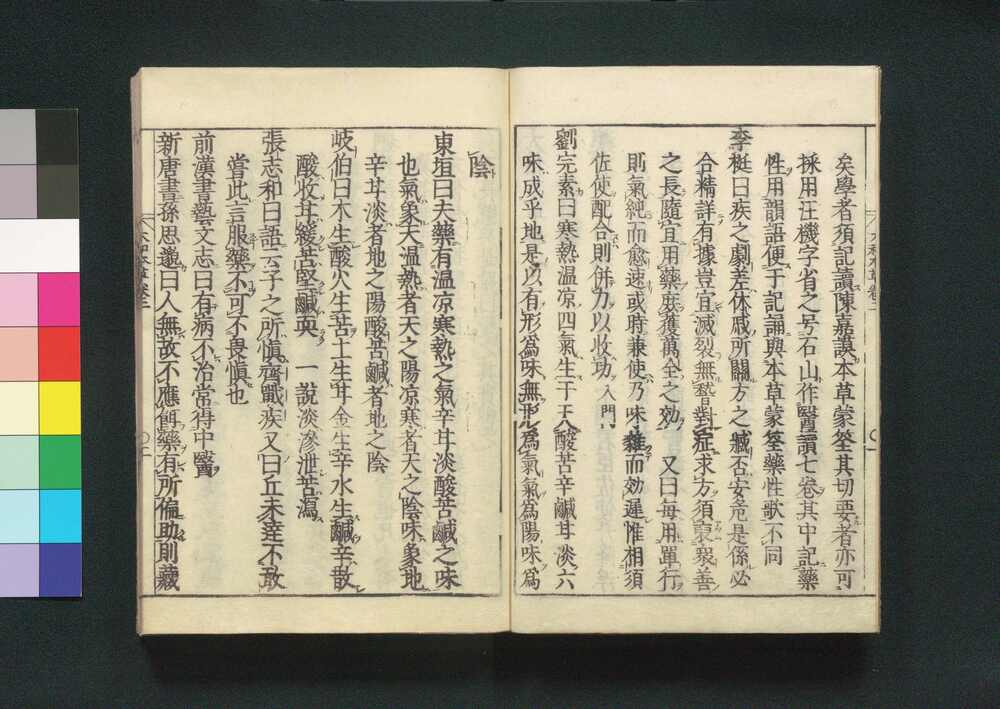 矣學者須記讀陳嘉謨本草蒙筌其切要者亦可
採用汪機字省之号石山作醫讀七卷其中記藥
性用韻語便于記誦與本草蒙筌藥性歌不同
李梴曰疾之劇差休戚所關方之臧否安危是係必
合精詳有據豈宜滅裂無稽對症求方須裒衆善
之長隨宜用藥庶獲萬全之効 又曰每用單行
則氣純而愈速或時兼使乃味雜而効遲惟相須
佐使配合則併力以收功入門
劉完素曰寒熱溫凉四氣生于天酸苦辛鹹甘淡六
味成乎地是以有形爲味無形爲氣氣爲陽味爲
陰
東垣曰夫藥有温凉寒熱之氣辛甘淡酸苦鹹之味
也氣象天温熱者天之陽凉寒者天之陰味象地
辛甘淡者地之陽酸苦鹹者地之陰
岐伯曰木生酸火生苦土生甘金生辛水生鹹辛散
酸收甘緩苦堅鹹耎 一說淡滲泄苦瀉
張志和曰語云子之所愼齊戰疾又曰丘未達不敢
嘗此言服藥不可不畏愼也
前漢書藝文志曰有病不治常得中醫
新唐書孫思邈曰人無故不應餌藥有所偏助則藏